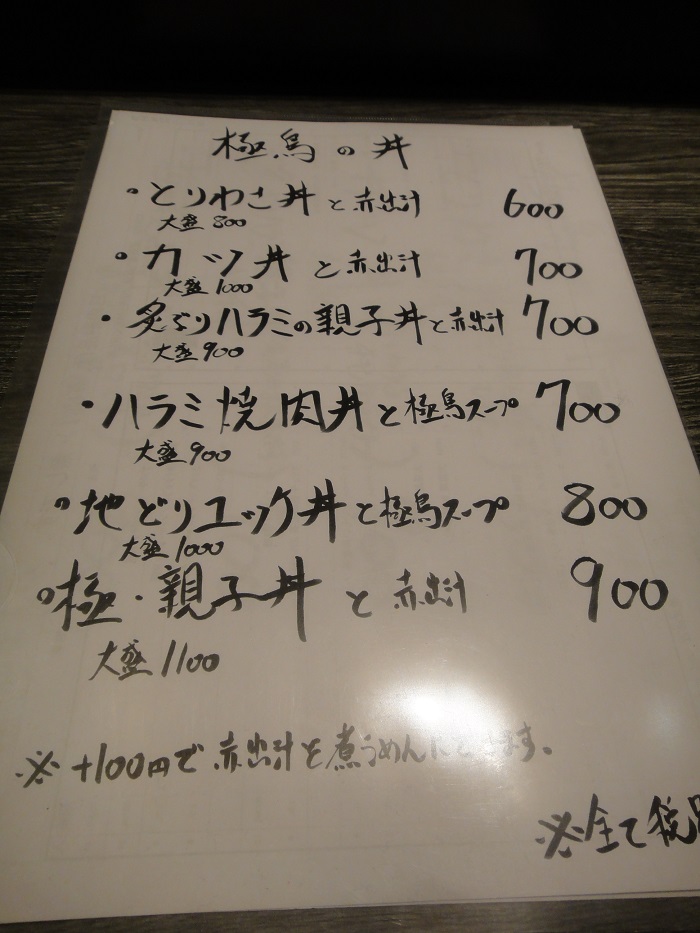 極鳥の丼
・とりわさ丼と赤出汁 600
大盛800
・カツ丼と赤出汁 700
大盛1000
・炙りハラミの親子丼と赤出汁 700
大盛900
・ハラミ焼肉丼と極鳥スープ 700
大盛900
・地どりユッケ丼と極鳥スープ 800
大盛1000
・極・親子丼と赤出汁 900
大盛1100
※+100円で赤出汁を煮うめんに ます。
※全て税